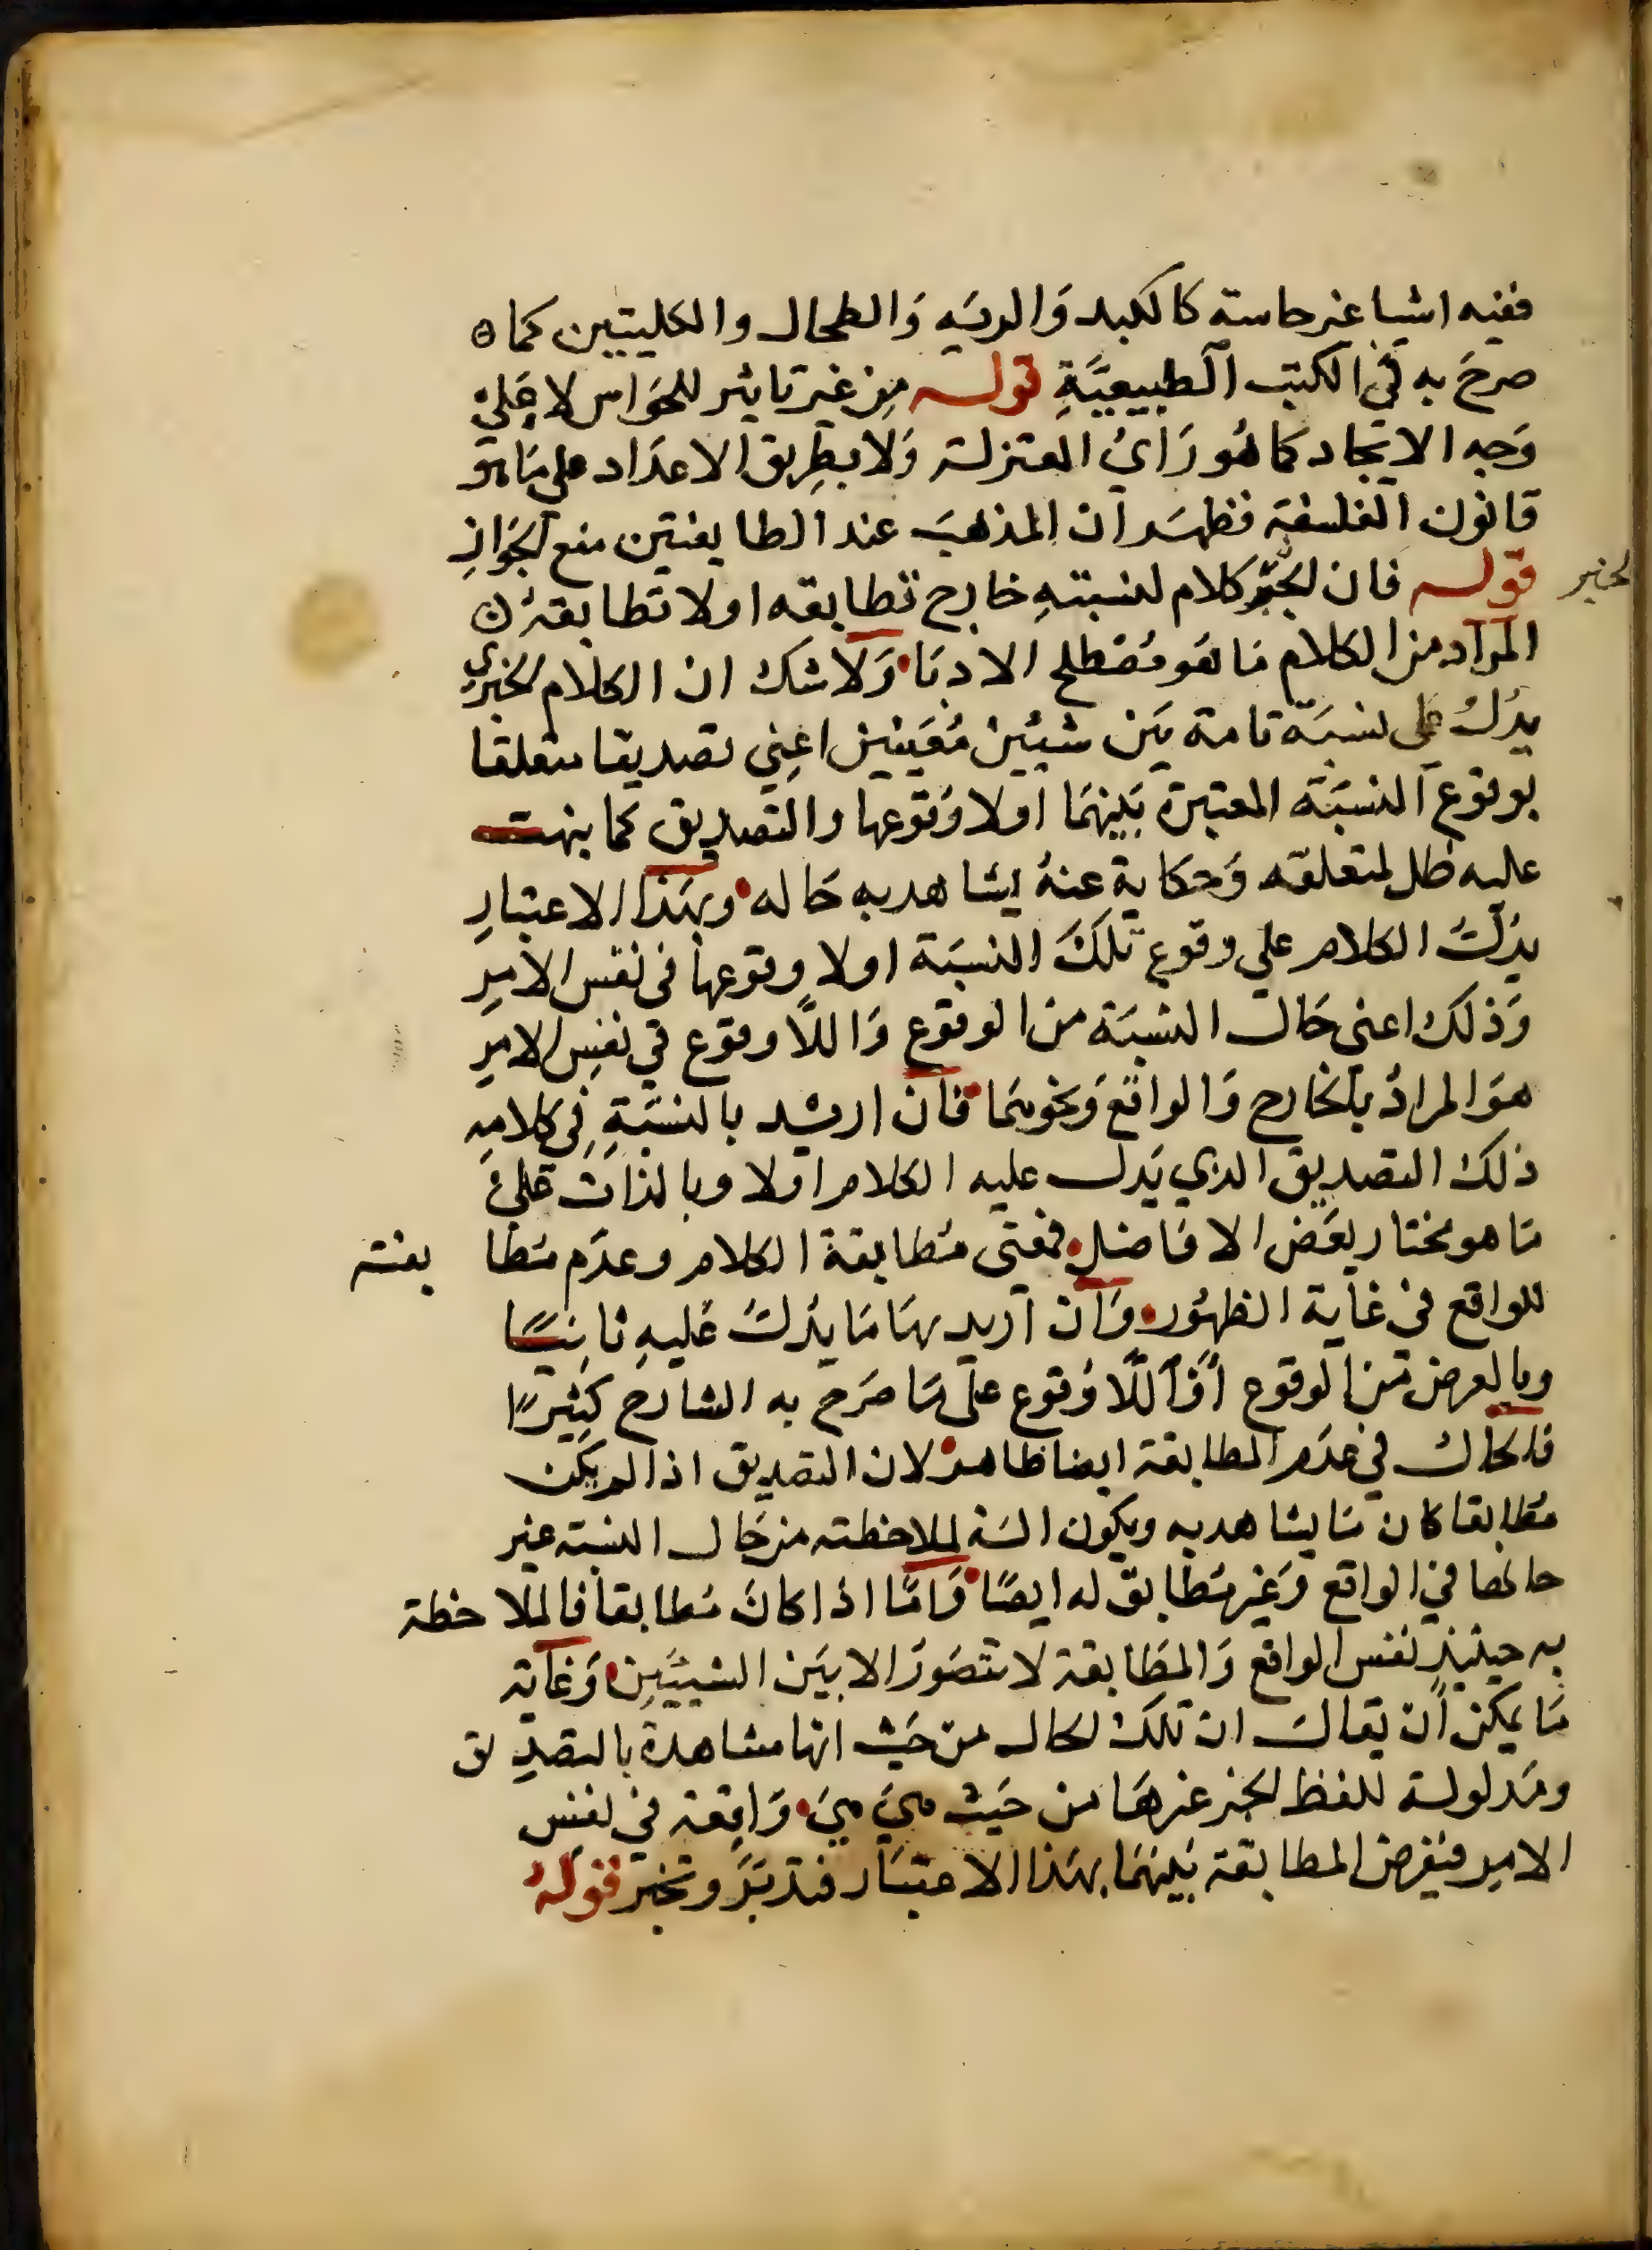 ففيه اشيا غير حاسة كالكبد وَالريَه وَالطحال والكليتين كما ه
صرحَ به في الكتب الطبيعيَّةِ قوله من غير تاثير للحَواس لا عَلى
وَجه الايجاد كما هُو رَايُ المعتزلة وَلا بطريق الاعدَاد على مَا هو
قانون الفلسفة فظهَر ان المذهبَ عند الطايفتين منع الجَواز
قوله فان الخبر كلام لنسبتهِ خارج تطابقه اولا تطابقه ن
الخبر
المرَاد من الكلام مَا هُو مُصْطلح الادبَا وَلا شك ان الكلام الخبري
يدُلُ على نسبَة تامة بَين شيئين مُعَينين اعِني تصديقا متعلقا
بوقوع النسبَة المعتبرة بَينهمَا اولا وُقوعها والتصديق كما بنهت
عليه ظل لمتعلقه وَحكاية عنهُ يشاهد به حَاله وبهَذا الاعتبارِ
يدُلُ الكلام علي وقوع تلكَ النسبَة اولا وقوعها في نفس الامرِ
وَذلك اعني حَال النسْبَة من الوقوع وَاللاَّ وقوع في نفسِ الامرِ
هوَ المرادُ بالخارج وَالواقع وَنحوهمَا فان اريد بالنسْبَةِ في كلامهِ
ذلك التصديق الذي يَدل عليه الكلام اولا وبالذات عَلىَ
مَا هو مختار بعَض الافَاضل فمعنى مُطابقة الكلام وعدَم مَطا بقته
للواقع في غاية الظهُور وَان اريد بهَا مَا يدُلُ عَليهِ ثانيًا
وبالعرض من الوقوع اوَ اللَّا وُقوع على مَا صَرح به الشارح كثِيرًا
فالحال في عدَم المطابقة ايضا ظاهر لان التصديق اذا لم يكن
مُطابقا كان مَا يشاهد به ويكون الة لملاحظته من حَال النسبة غير
حالها في الواقع وَغير مَطابق له ايضًا وَامَّا اذا كانَ مُطابقا فالملاحظة
به حينئذٍ نفس الواقع وَالمطَابقة لا تتصَوّر الا بيَن الشيئَينِ وَغاية
مَا يمكن ان يقالَ ان تلكَ الحال من حَيث انها مشاهدة بالتصديق
ومَدلولة للفظ الخبر غيرهَا من حَيث هيَ هيَ وَاقِعَة في نفسِ
الامرِ فيفرض المطابقة بَينهمَا بهَذا الاعتبَار فتدبَّرَ وتخبر قولهُ